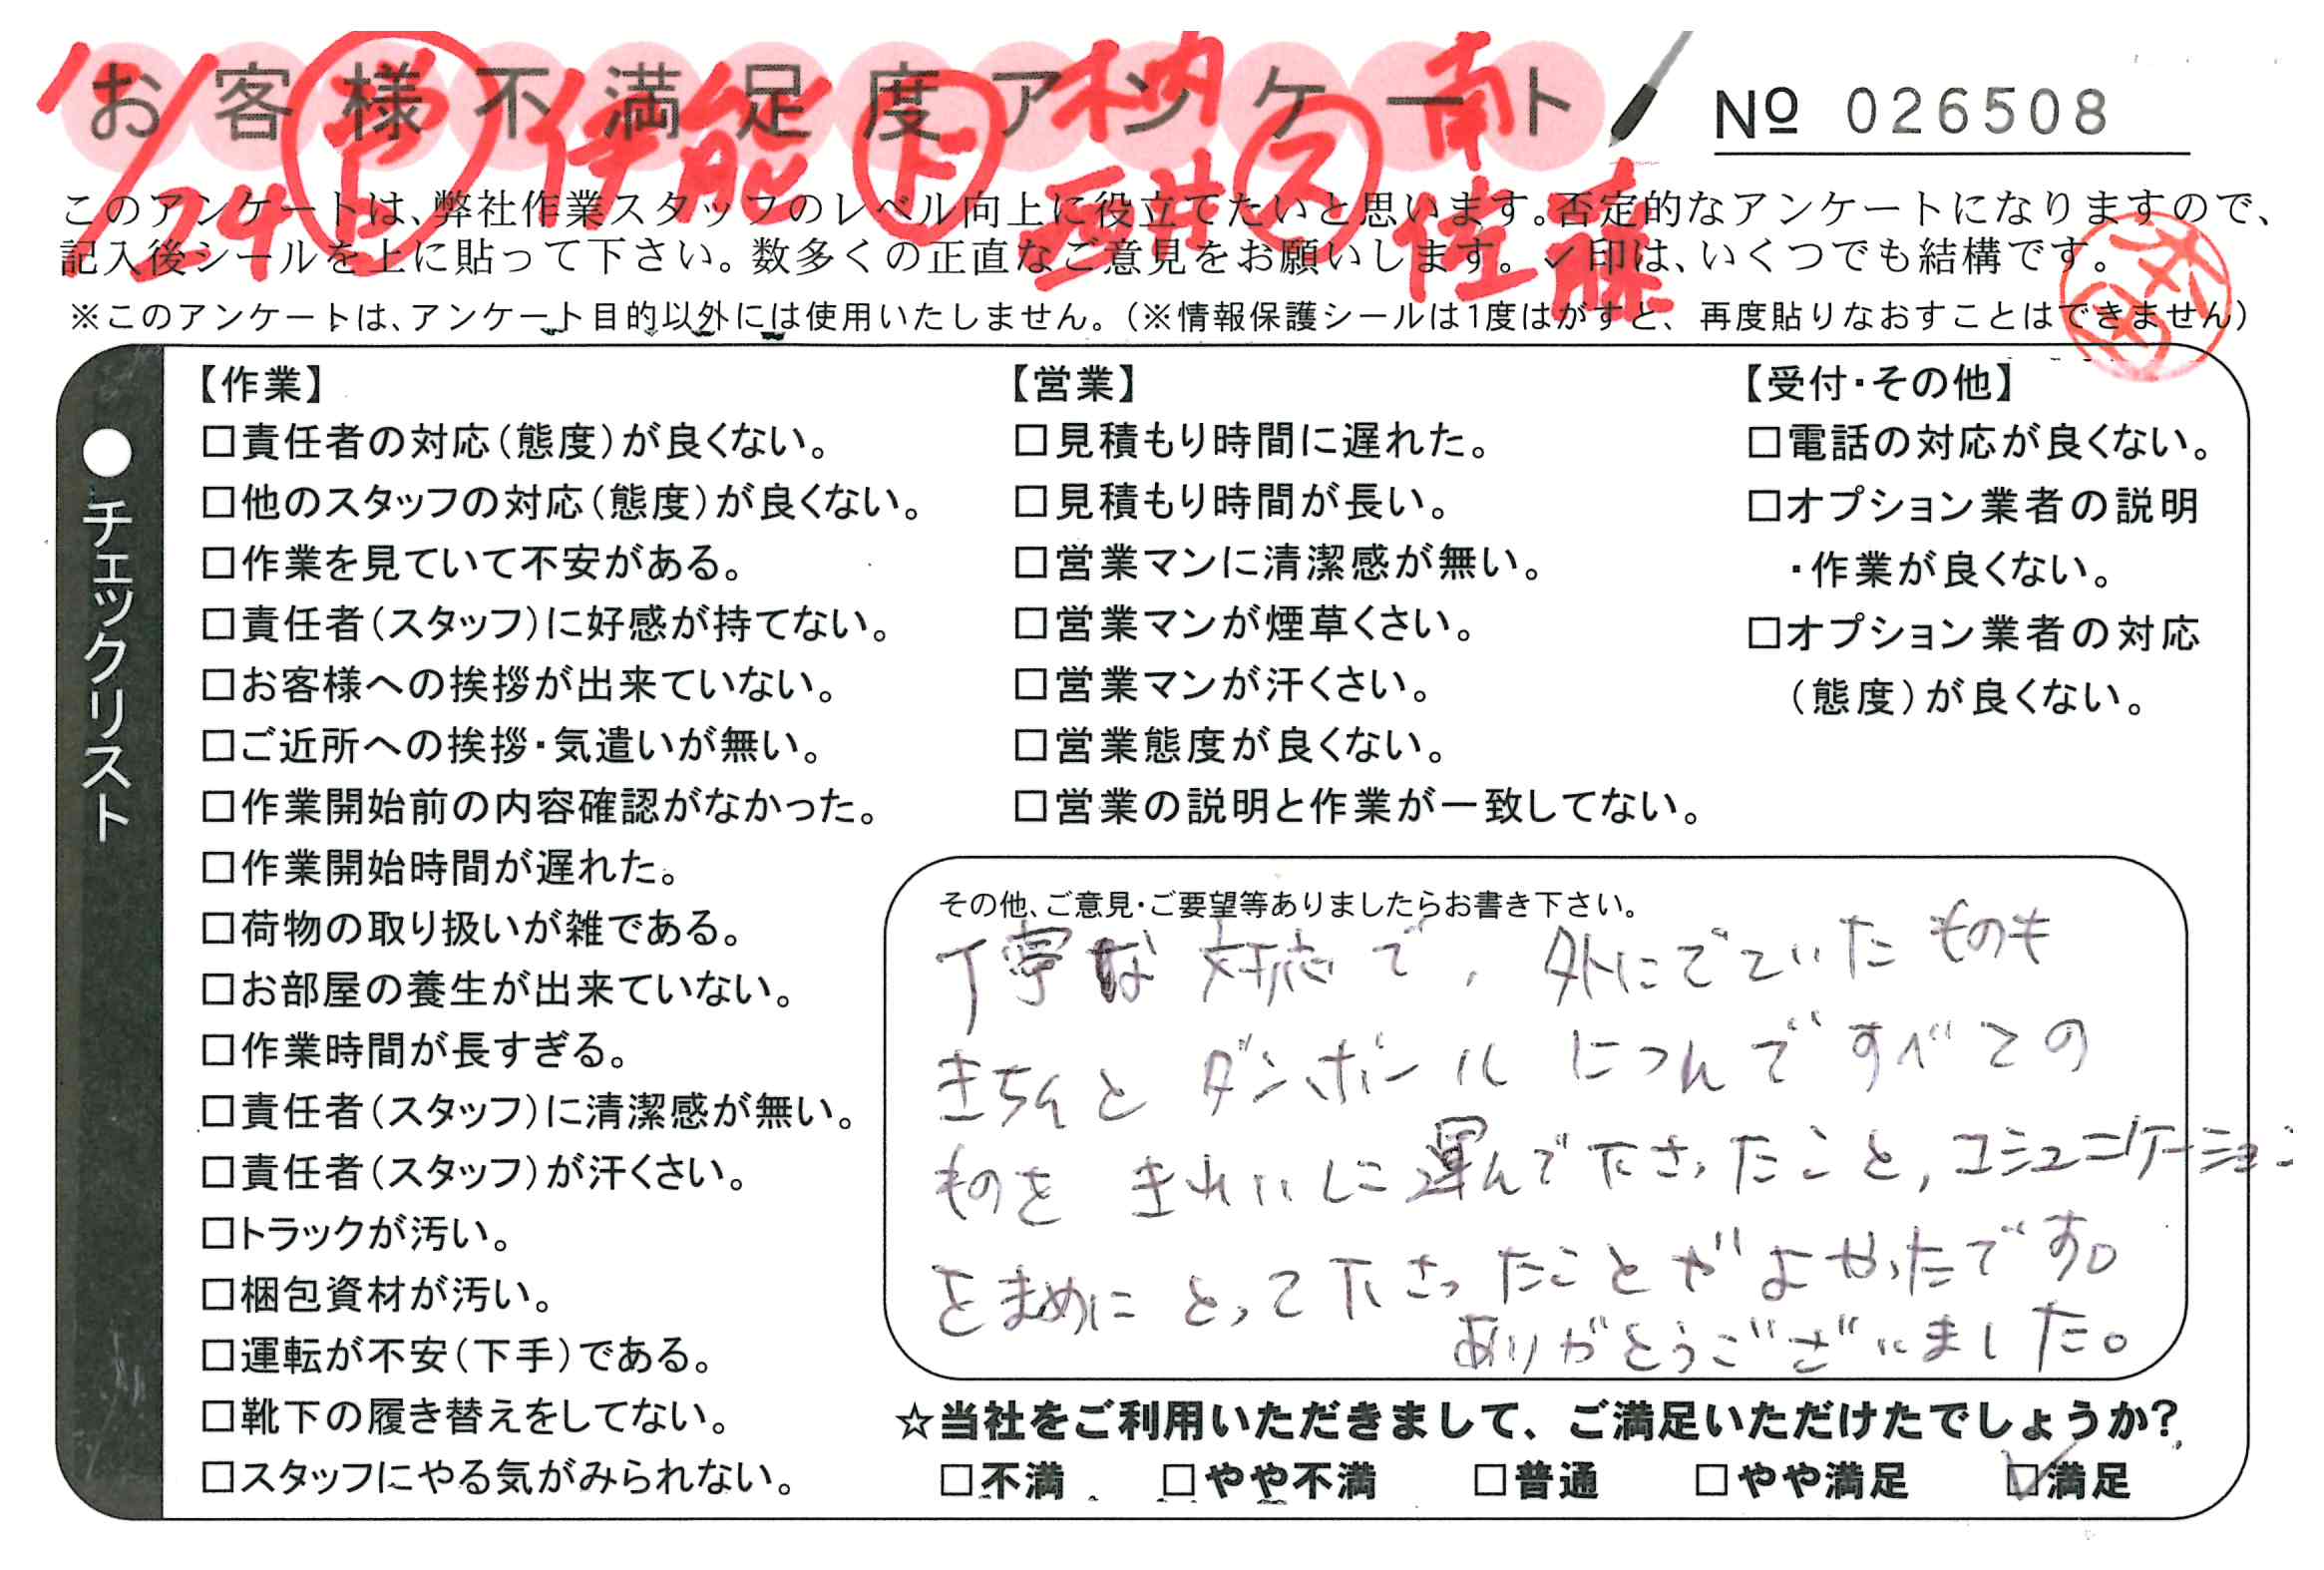 お客様不満足度アンケート
№ 026508
1/24 伊能 ド 柄 ス 南
佐藤
このアンケートは、弊社作業スタッフのレベル向上に役立てたいと思います。否定的なアンケートになりますので、
記入後シールを上に貼って下さい。数多くの正直なご意見をお願いします。✓印は、いくつでも結構です。
※このアンケートは、アンケート目的以外には使用いたしません。(※情報保護シールは1度はがすと、再度貼りなおすことはできません)
●チェックリスト
【作業】
□責任者の対応(態度)が良くない。
□他のスタッフの対応(態度)が良くない。
□作業を見ていて不安がある。
□責任者(スタッフ)に好感が持てない。
□お客様への挨拶が出来ていない。
□ご近所への挨拶・気遣いが無い。
□作業開始前の内容確認がなかった。
□作業開始時間が遅れた。
□荷物の取り扱いが雑である。
□お部屋の養生が出来ていない。
□作業時間が長すぎる。
□責任者(スタッフ)に清潔感が無い。
□責任者(スタッフ)が汗くさい。
□トラックが汚い。
□梱包資材が汚い。
□運転が不安(下手)である。
□靴下の履き替えをしてない。
□スタッフにやる気がみられない。
【営業】
□見積もり時間に遅れた。
□見積もり時間が長い。
□営業マンに清潔感が無い。
□営業マンが煙草くさい。
□営業マンが汗くさい。
□営業態度が良くない。
□営業の説明と作業が一致してない。
【受付・その他】
□電話の対応が良くない。
□オプション業者の説明
・作業が良くない。
□オプション業者の対応
(態度)が良くない。
その他、ご意見・ご要望等ありましたらお書き下さい。
丁寧な対応で、外にでていたものも
きちんとダンボールにつんですべての
ものをきれいに運んで下さったこと、コミュニケーション
をまめにとって下さったことがよかったです。
ありがとうございました。
☆当社をご利用いただきまして、ご満足いただけたでしょうか?
□不満 □やや不満 □普通 □やや満足 ☑満足